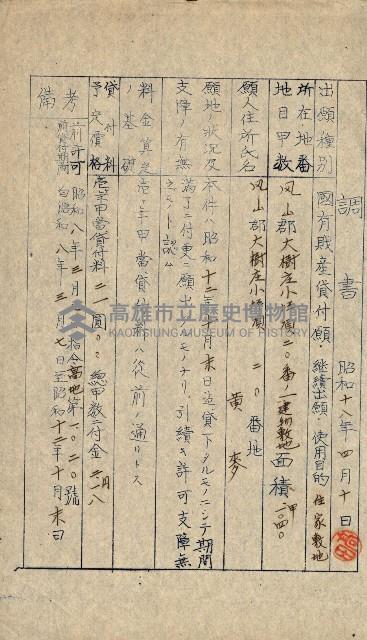 調書 昭和十八年四月十日
出願種別 國有財産貸付願 継續出願 使用目的 住家敷地
所在地番地目甲数 凤山郡大樹庄小坪頂二〇番ノ一建物敷地面積
願人住所氏名 凤山郡大樹庄小坪頂二〇番地 黄麥
願地ノ狀況及支障ノ有無 本件ハ昭和十二年 月末日迄貸下タルモノニシテ期間満了ニ付更ニ願出タルモノナリ引續キ許可支障無之モノト認ム
料金算定ノ基礎 壱ヶ年甲當貸付料ハ從前ノ通リトス
貸付料予定價格 壱ヶ年甲當貸付料二一圓〇〇 總甲数ニ付金
備考 前許可 昭和八年三月 指令高地第一〇二〇號
前貸付期間 自昭和八年三月七日至昭和十二年十月末日
高雄市立歷史博物館
KAOHSIUNG MUSEUM OF HISTORY